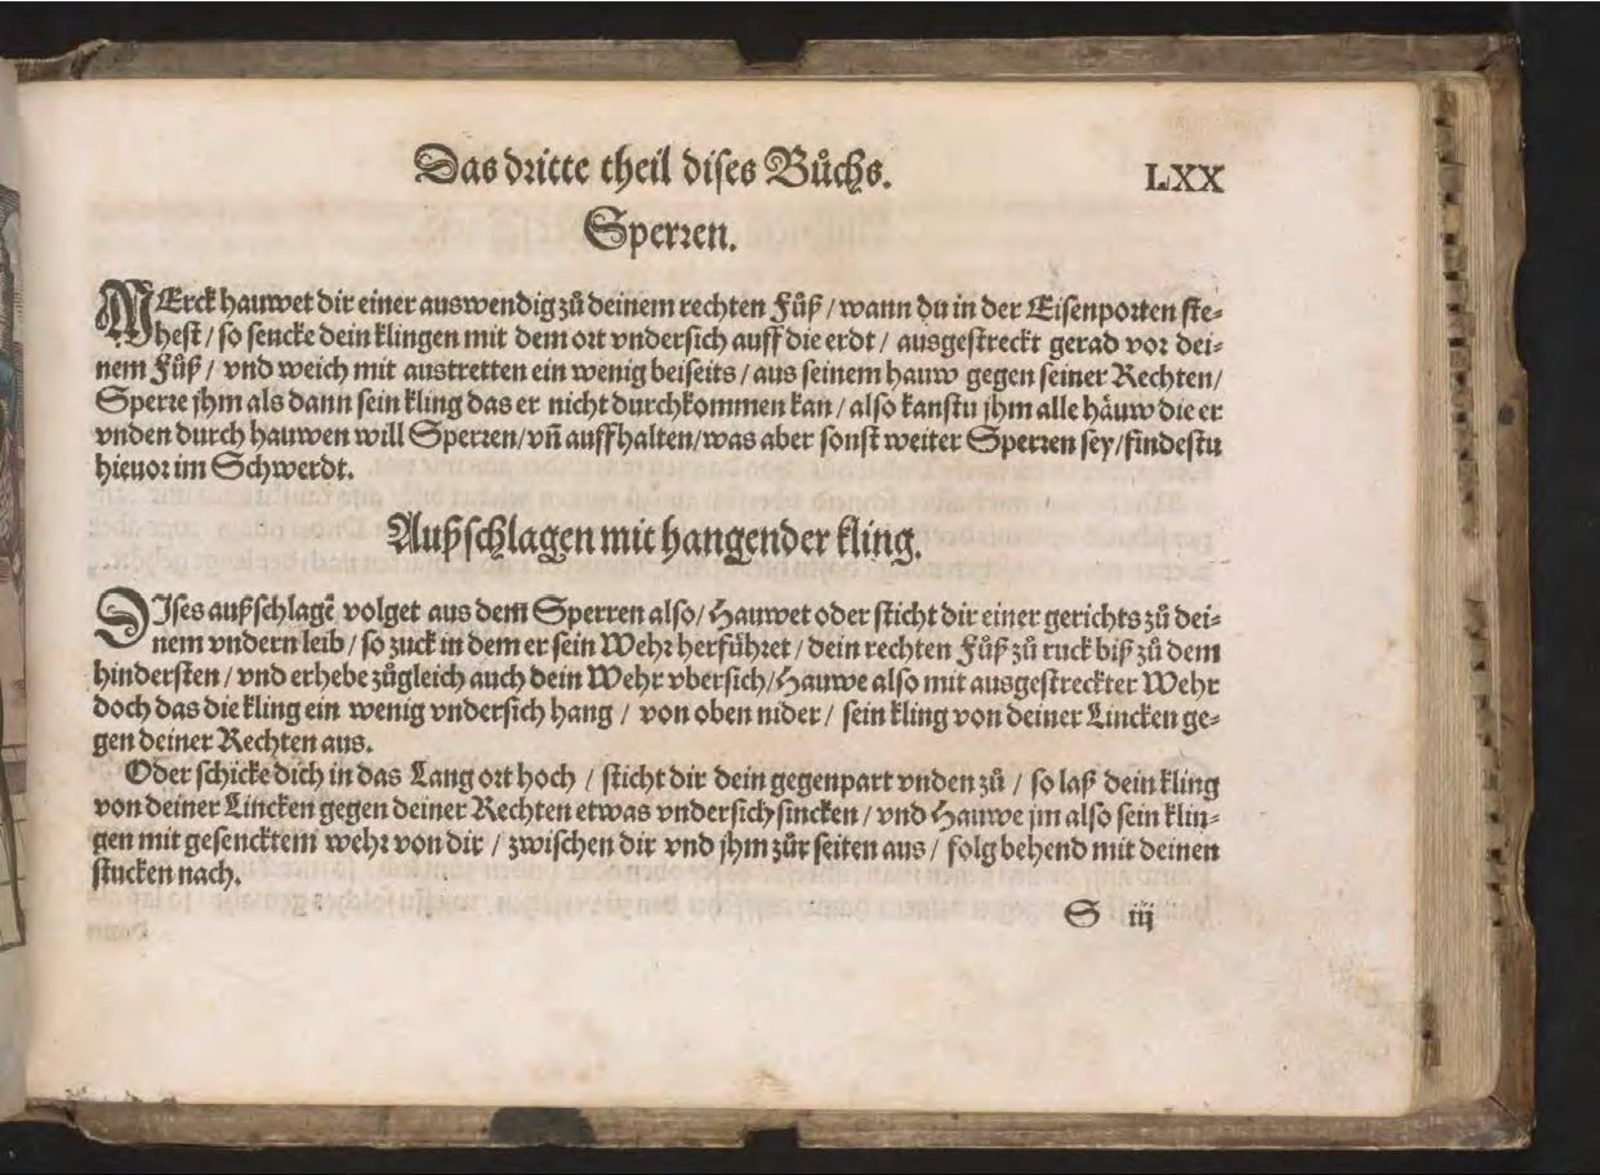 Das dritte theil dises Bůchs.
LXX
Sperren.
MErck hauwet dir einer auswendig zů deinem rechten Fůß / wann du in der Eisenporten ste-
hest / so sencke dein klingen mit dem ort vndersich auff die erdt / ausgestreckt gerad vor dei-
nem Fůß / vnd weich mit austretten ein wenig beiseits / aus seinem hauw gegen seiner Rechten /
Sperre jhm als dann sein kling das er nicht durchkommen kan / also kanstu jhm alle häuw die er
vnden durch hauwen will Sperren / vn̄ auffhalten / was aber sonst weiter Sperren sey / findestu
hieuor im Schwerdt.
Außschlagen mit hangender kling.
DIses außschlagē volget aus dem Sperren also / Hauwet oder sticht dir einer gerichts zů dei-
nem vndern leib / so zuck in dem er sein Wehr herführet / dein rechten Fůß zů ruck biß zů dem
hindersten / vnd erhebe zůgleich auch dein Wehr vbersich / Hauwe also mit ausgestreckter Wehr
doch das die kling ein wenig vndersich hang / von oben nider / sein kling von deiner Lincken ge-
gen deiner Rechten aus.
Oder schicke dich in das Lang ort hoch / sticht dir dein gegenpart vnden zů / so laß dein kling
von deiner Lincken gegen deiner Rechten etwas vndersich sincken / vnd Hauwe jm also sein klin-
gen mit gesencktem wehr von dir / zwischen dir vnd jhm zůr seiten aus / folg behend mit deinen
stucken nach.
S iij